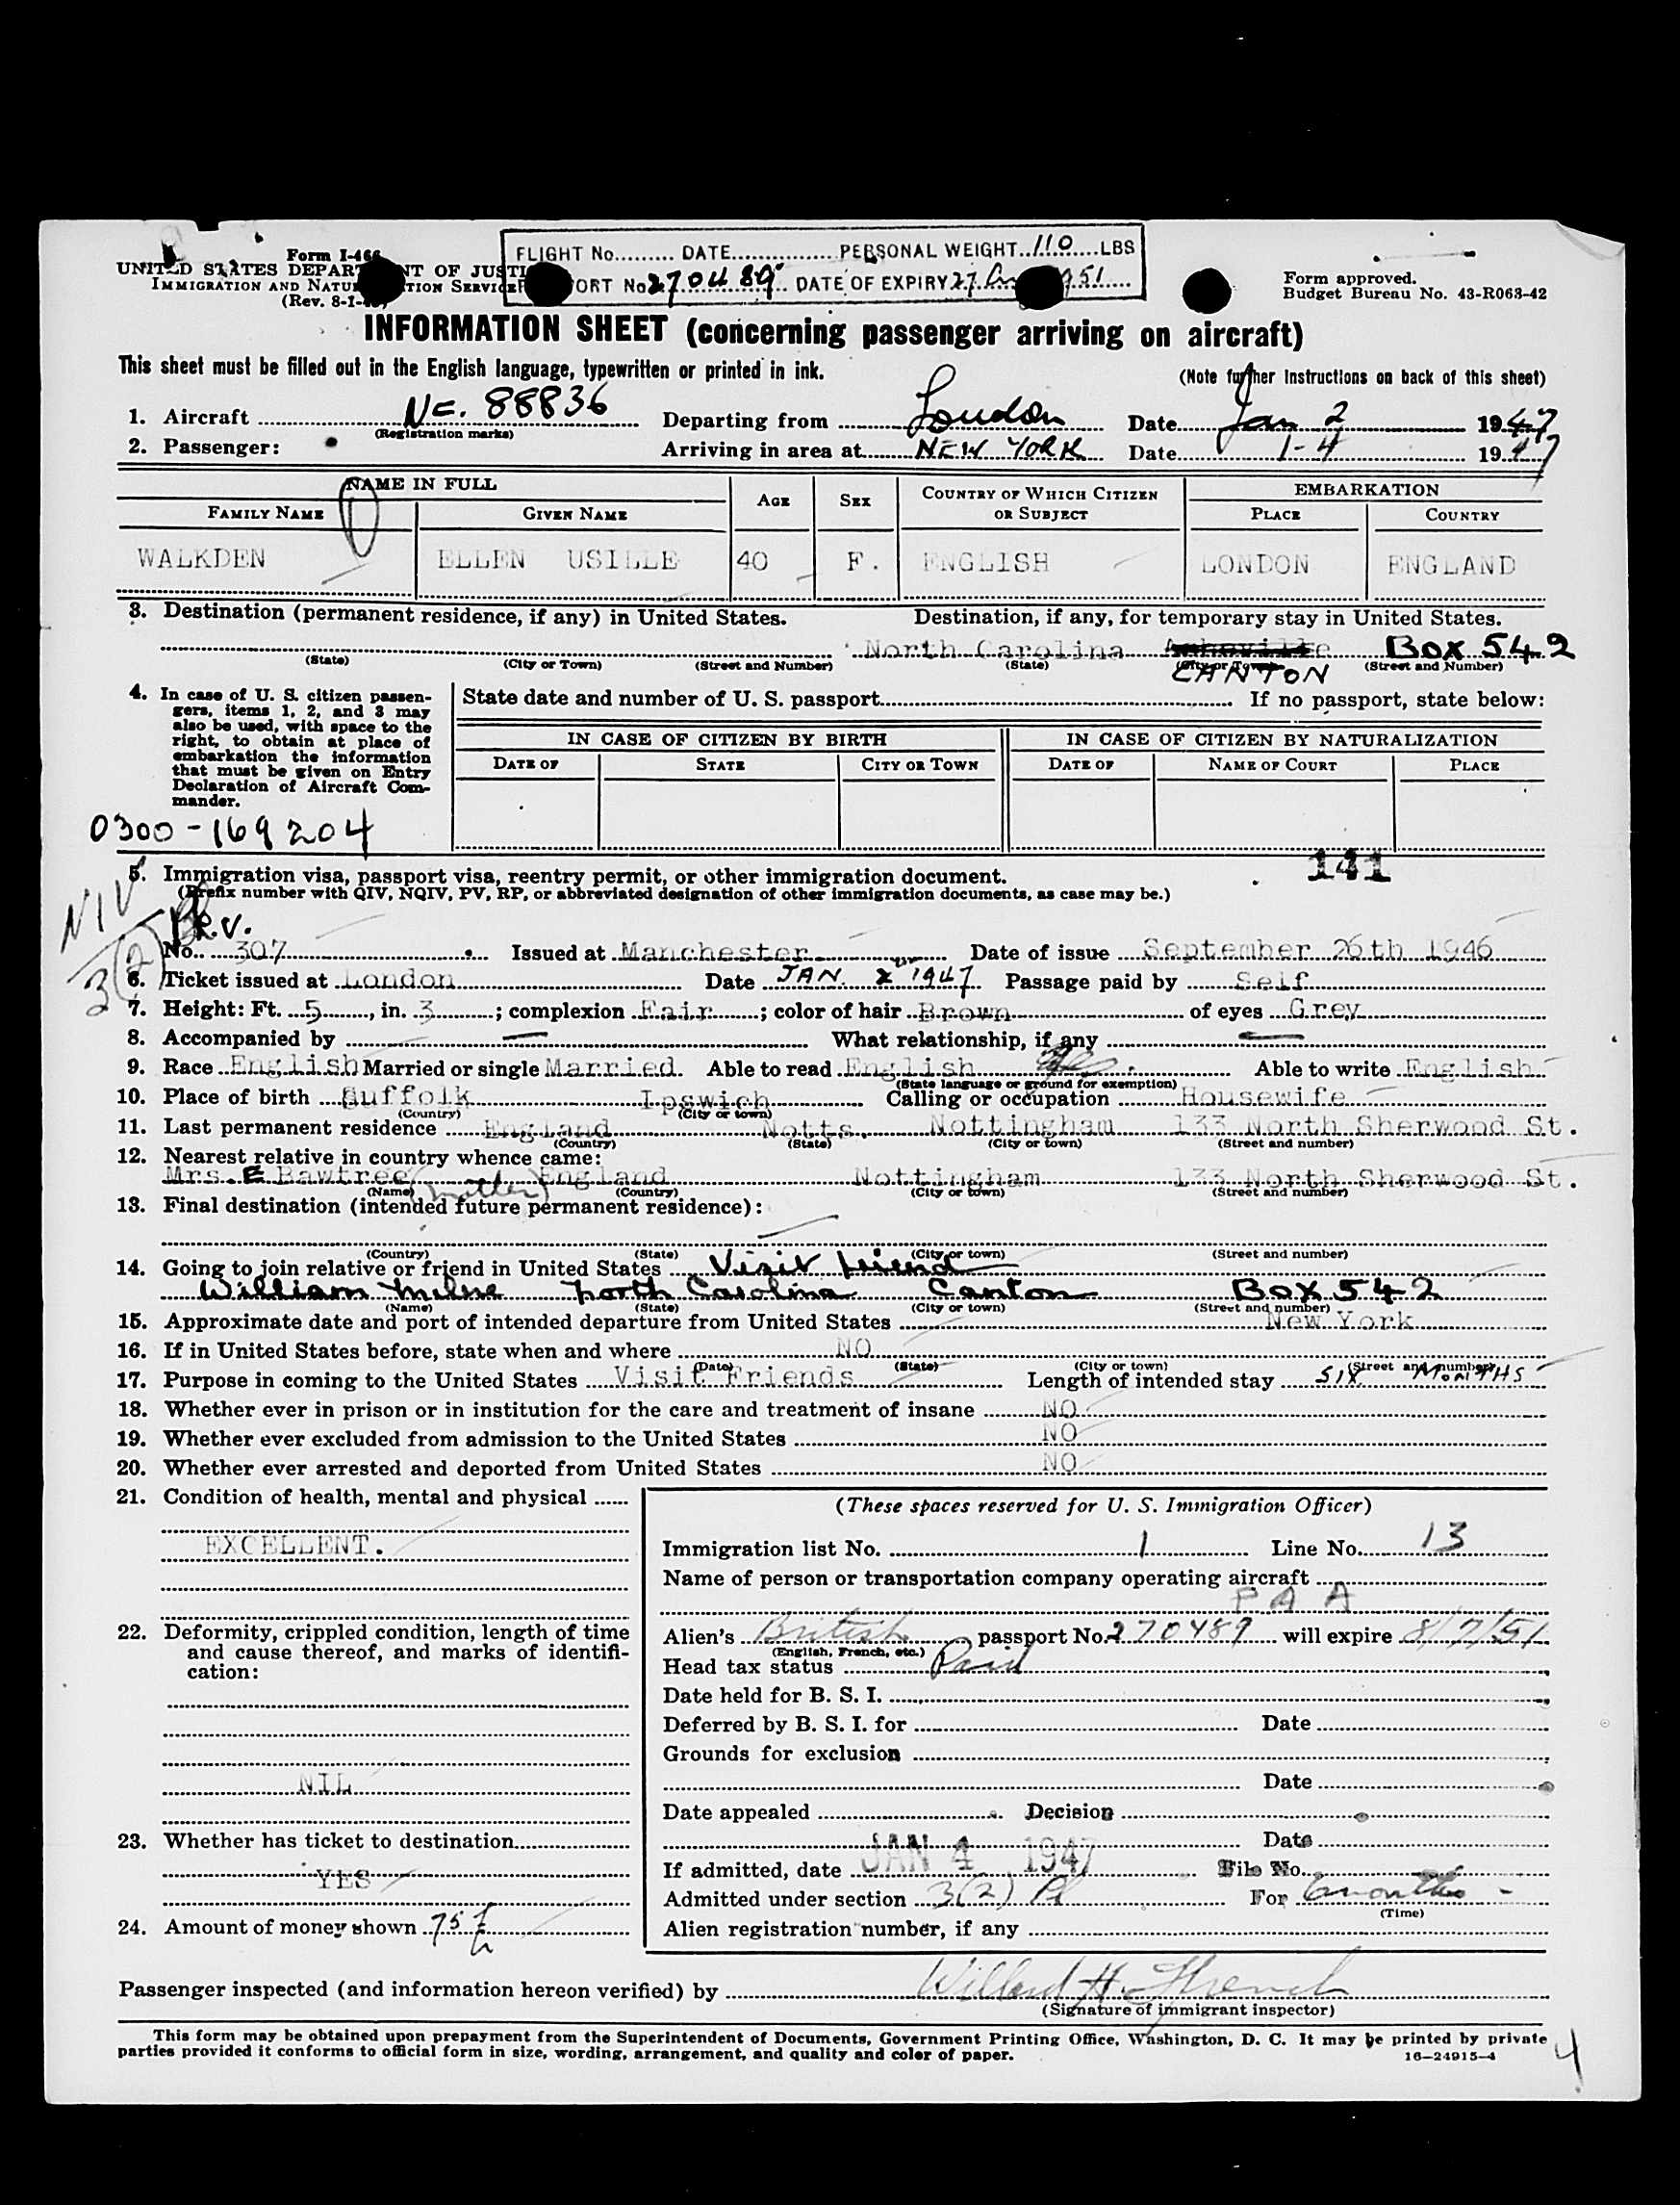 Form I-466
UNITED STATES DEPARTMENT OF JUSTICE
IMMIGRATION AND NATURALIZATION SERVICE
(Rev. 8-1-
FLIGHT No.......... DATE............... PERSONAL WEIGHT 110 LBS
PORT No 270489 DATE OF EXPIRY 27 1951
Form approved.
Budget Bureau No. 43-R063-42
INFORMATION SHEET (concerning passenger arriving on aircraft)
This sheet must be filled out in the English language, typewritten or printed in ink.
(Note further instructions on back of this sheet)
1. Aircraft NC. 88836 Departing from London Date Jan 2 1947
(Registration marks)
2. Passenger: Arriving in area at NEW YORK Date 1-4 1947
NAME IN FULL AGE SEX COUNTRY OF WHICH CITIZEN OR SUBJECT EMBARKATION
FAMILY NAME GIVEN NAME PLACE COUNTRY
WALKDEN ELLEN USILLE 40 F. ENGLISH LONDON ENGLAND
3. Destination (permanent residence, if any) in United States. Destination, if any, for temporary stay in United States.
North Carolina Asheville Box 542
(State) (City or Town) (Street and Number) (State) (City or Town) (Street and Number)
CANTON
4. In case of U. S. citizen passengers, items 1, 2, and 3 may also be used, with space to the right, to obtain at place of embarkation the information that must be given on Entry Declaration of Aircraft Commander.
State date and number of U. S. passport If no passport, state below:
IN CASE OF CITIZEN BY BIRTH IN CASE OF CITIZEN BY NATURALIZATION
DATE OF STATE CITY OR TOWN DATE OF NAME OF COURT PLACE
0300-169204
141
5. Immigration visa, passport visa, reentry permit, or other immigration document.
(Prefix number with QIV, NQIV, PV, RP, or abbreviated designation of other immigration documents, as case may be.)
NIV
3(2)
P.V.
No. 307 Issued at Manchester Date of issue September 26th 1946
6. Ticket issued at London Date JAN. 2 1947 Passage paid by Self
7. Height: Ft. 5, in. 3; complexion Fair; color of hair Brown of eyes Grey
8. Accompanied by — What relationship, if any —
9. Race English Married or single Married. Able to read English Able to write English
(State language or ground for exemption)
10. Place of birth Suffolk Ipswich Calling or occupation Housewife
(Country) (City or town)
11. Last permanent residence England Notts. Nottingham 133 North Sherwood St.
(Country) (State) (City or town) (Street and number)
12. Nearest relative in country whence came:
Mrs. E Bawtree (mother) England Nottingham 133 North Sherwood St.
(Name) (Country) (City or town) (Street and number)
13. Final destination (intended future permanent residence):
(Country) (State) (City or town) (Street and number)
14. Going to join relative or friend in United States Visit friend
William Milne North Carolina Canton Box 542
(Name) (State) (City or town) (Street and number)
15. Approximate date and port of intended departure from United States New York
16. If in United States before, state when and where NO
(Date) (State) (City or town) (Street and number)
17. Purpose in coming to the United States Visit Friends Length of intended stay SIX MONTHS
18. Whether ever in prison or in institution for the care and treatment of insane NO
19. Whether ever excluded from admission to the United States NO
20. Whether ever arrested and deported from United States NO
21. Condition of health, mental and physical
EXCELLENT.
22. Deformity, crippled condition, length of time and cause thereof, and marks of identification:
NIL
23. Whether has ticket to destination
YES
24. Amount of money shown 75 £
(These spaces reserved for U. S. Immigration Officer)
Immigration list No. 1 Line No. 13
Name of person or transportation company operating aircraft
P A A
Alien's British passport No. 270489 will expire 8/7/51
(English, French, etc.)
Head tax status Paid
Date held for B. S. I.
Deferred by B. S. I. for Date
Grounds for exclusion
Date
Date appealed Decision
Date
If admitted, date JAN 4 1947 File No.
Admitted under section 3(2) For 6 months -
(Time)
Alien registration number, if any
Passenger inspected (and information hereon verified) by Willard H. French
(Signature of immigrant inspector)
This form may be obtained upon prepayment from the Superintendent of Documents, Government Printing Office, Washington, D. C. It may be printed by private
parties provided it conforms to official form in size, wording, arrangement, and quality and color of paper.
16—24915-4
4